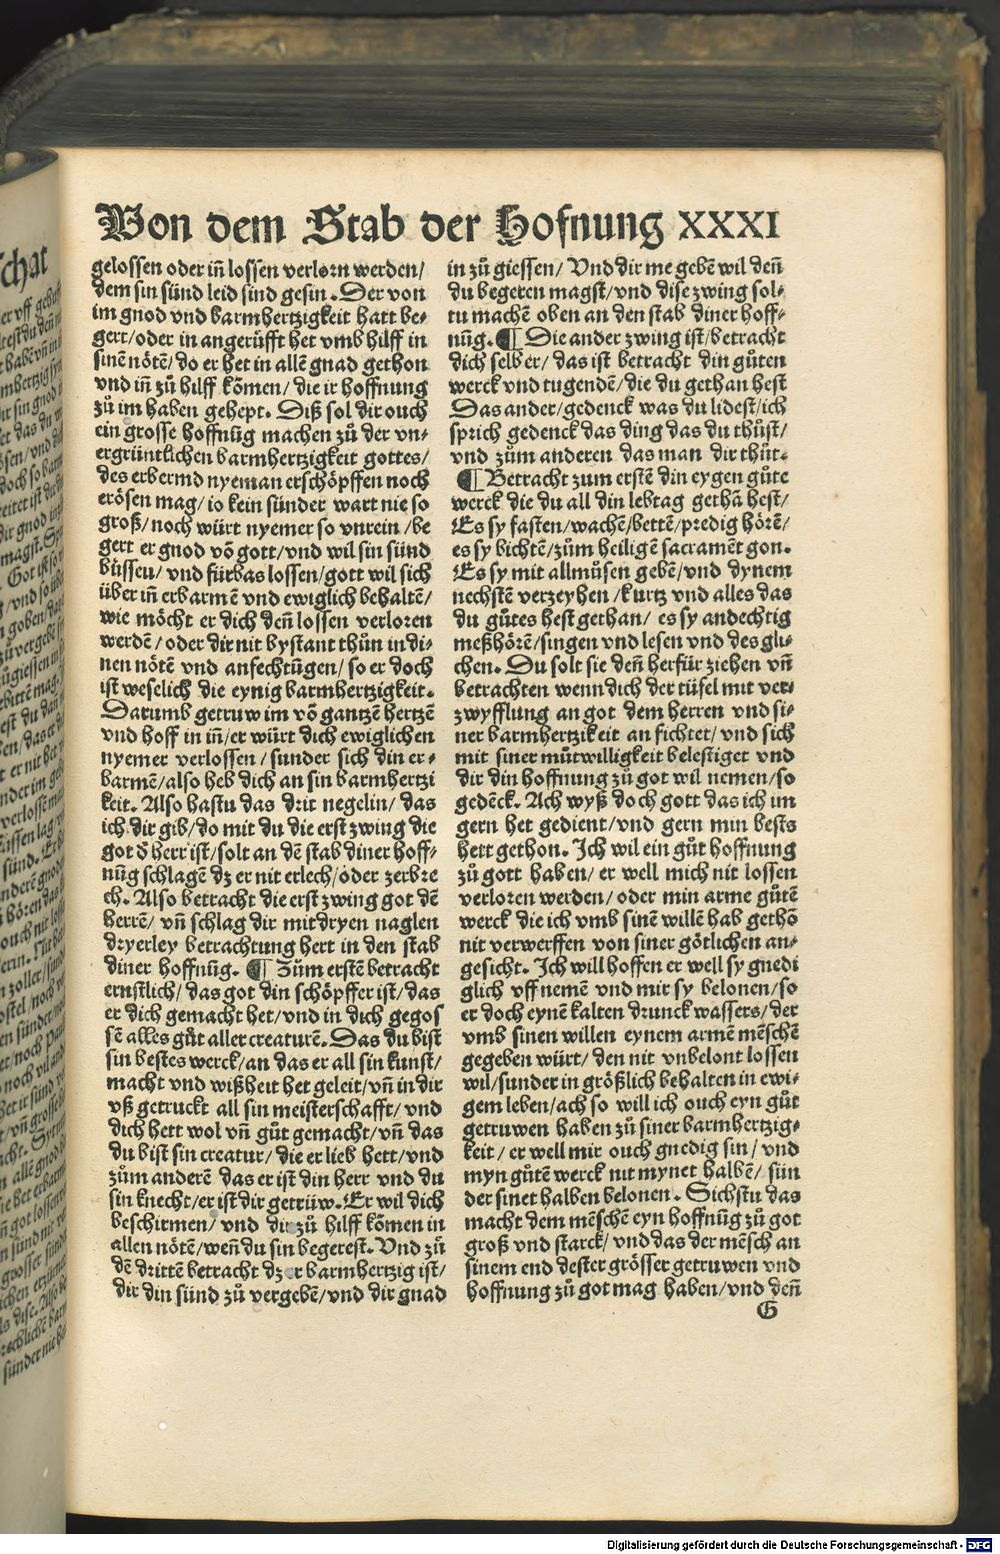 Von dem Stab der Hofnung XXXI
gelossen oder in̄ lossen verlorn werden/
dem sin sünd leid sind gesin. Der von
im gnod vnd barmhertzigkeit hatt be⸗
gert/oder in angerüfft het vmb hilff in
sinē nötē/ do er het in allē gnad gethon
vnd in̄ zů hilff kōmen/ die ir hoffnung
zů im haben gehept. Diß sol dir ouch
ein grosse hoffnūg machen zů der vn⸗
ergrüntlichen barmhertzigkeit gottes/
des erbermd nyeman erschöpffen noch
erösen mag/ io kein sünder wart nie so
groß/ noch würt nyemer so vnrein/ be
gert er gnod vō gott/ vnd wil sin sünd
büssen/ vnd fürbas lossen/gott wil sich
über in̄ erbarmē vnd ewiglich behaltē/
wie möcht er dich den̄ lossen verloren
werdē/ oder dir nit bystant thůn in di⸗
nen nötē vnd anfechtūgen/ so er doch
ist weselich die eynig barmhertzigkeit.
Darumb getruw im vō gantzē hertzē
vnd hoff in in̄/er würt dich ewiglichen
nyemer verlossen/ sunder sich din er⸗
barmē/also heb dich an sin barmhertzi
keit. Also hastu das drit negelin/ das
ich dir gib/do mit du die erst zwing die
got d̄ herr ist/solt an dē stab diner hoff⸗
nūg schlagē dz er nit erlech/oder zerbre
ch. Also betracht die erst zwing got dē
herrē/ vn̄ schlag dir mit dryen naglen
dryerley betrachtung hert in den stab
diner hoffnūg. ¶ Zům erstē betracht
ernstlich/ das got din schöpffer ist/das
er dich gemacht het/vnd in dich gegos
sē alles gůt aller creaturē. Das du bist
sin bestes werck/an das er all sin kunst/
macht vnd wißheit het geleit/vn̄ in dir
vß getruckt all sin meisterschafft/ vnd
dich hett wol vn̄ gůt gemacht/vn̄ das
du bist sin creatur/ die er lieb hett/vnd
zům anderē das er ist din herr vnd du
sin knecht/er ist dir getrüw. Er wil dich
beschirmen/ vnd dir zů hilff kōmen in
allen nötē/wen̄ du sin begerest. Vnd zů
dē drittē betracht dz er barmhertzig ist/
dir din sünd zů vergebē/vnd dir gnad
in zů giessen/ Vnd dir me gebē wil den̄
du begeren magst/vnd dise zwing sol⸗
tu machē oben an den stab diner hoff⸗
nūg. ¶ Die ander zwing ist/betracht
dich selber/ das ist betracht din gůten
werck vnd tugendē/die du gethan hest
Das ander/gedenck was du lidest/ich
sprich gedenck das ding das du thůst/
vnd zům anderen das man dir thůt.
¶ Betracht zum erstē din eygen gůte
werck die du all din lebtag gethā hest/
Es sy fasten/wachē/bettē/predig hörē/
es sy bichtē/zům heiligē sacramēt gon.
Es sy mit allmůsen gebē/vnd dynem
nechstē verzeyhen/kurtz vnd alles das
du gůtes hest gethan/ es sy andechtig
meßhörē/singen vnd lesen vnd des gli⸗
chen. Du solt sie den̄ herfür ziehen vn̄
betrachten wenn dich der tüfel mit ver⸗
zwyfflung an got dem herren vnd si⸗
ner barmhertzikeit anfichtet/ vnd sich
mit siner můtwilligkeit belestiget vnd
dir din hoffnung zů got wil nemen/so
gedēck. Ach wyß doch gott das ich im
gern het gedient/vnd gern min bests
hett gethon. Ich wil ein gůt hoffnung
zů gott haben/ er well mich nit lossen
verloren werden/ oder min arme gůtē
werck die ich vmb sinē willē hab gethō
nit verwerffen von siner götlichen an⸗
gesicht. Ich will hoffen er well sy gnedi
glich vff nemē vnd mir sy belonen/so
er doch eynē kalten drunck wassers/ der
vmb sinen willen eynem armē mēschē
gegeben würt/ den nit vnbelont lossen
wil/sunder in größlich behalten in ewi⸗
gem leben/ach so will ich ouch eyn gůt
getruwen haben zů siner barmhertzig⸗
keit/ er well mir ouch gnedig sin/ vnd
myn gůtē werck nit mynet halbē/ sün
der sinet halben belonen. Sichstu das
macht dem mēschē eyn hoffnūg zů got
groß vnd starck/ vnd das der mēsch an
sinem end dester grösser getruwen vnd
hoffnung zů got mag haben/vnd den̄
G
Digitalisierung gefördert durch die Deutsche Forschungsgemeinschaft - DFG